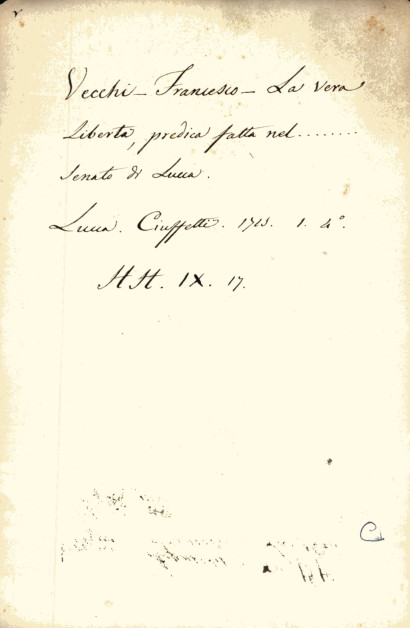 Vecchi - Francesco - La vera
Libertà, predica fatta nel ........
Senato di Lucca.
Lucca. Ciuffetti. 1713. 1. 4°.
HH. IX. 17.
C